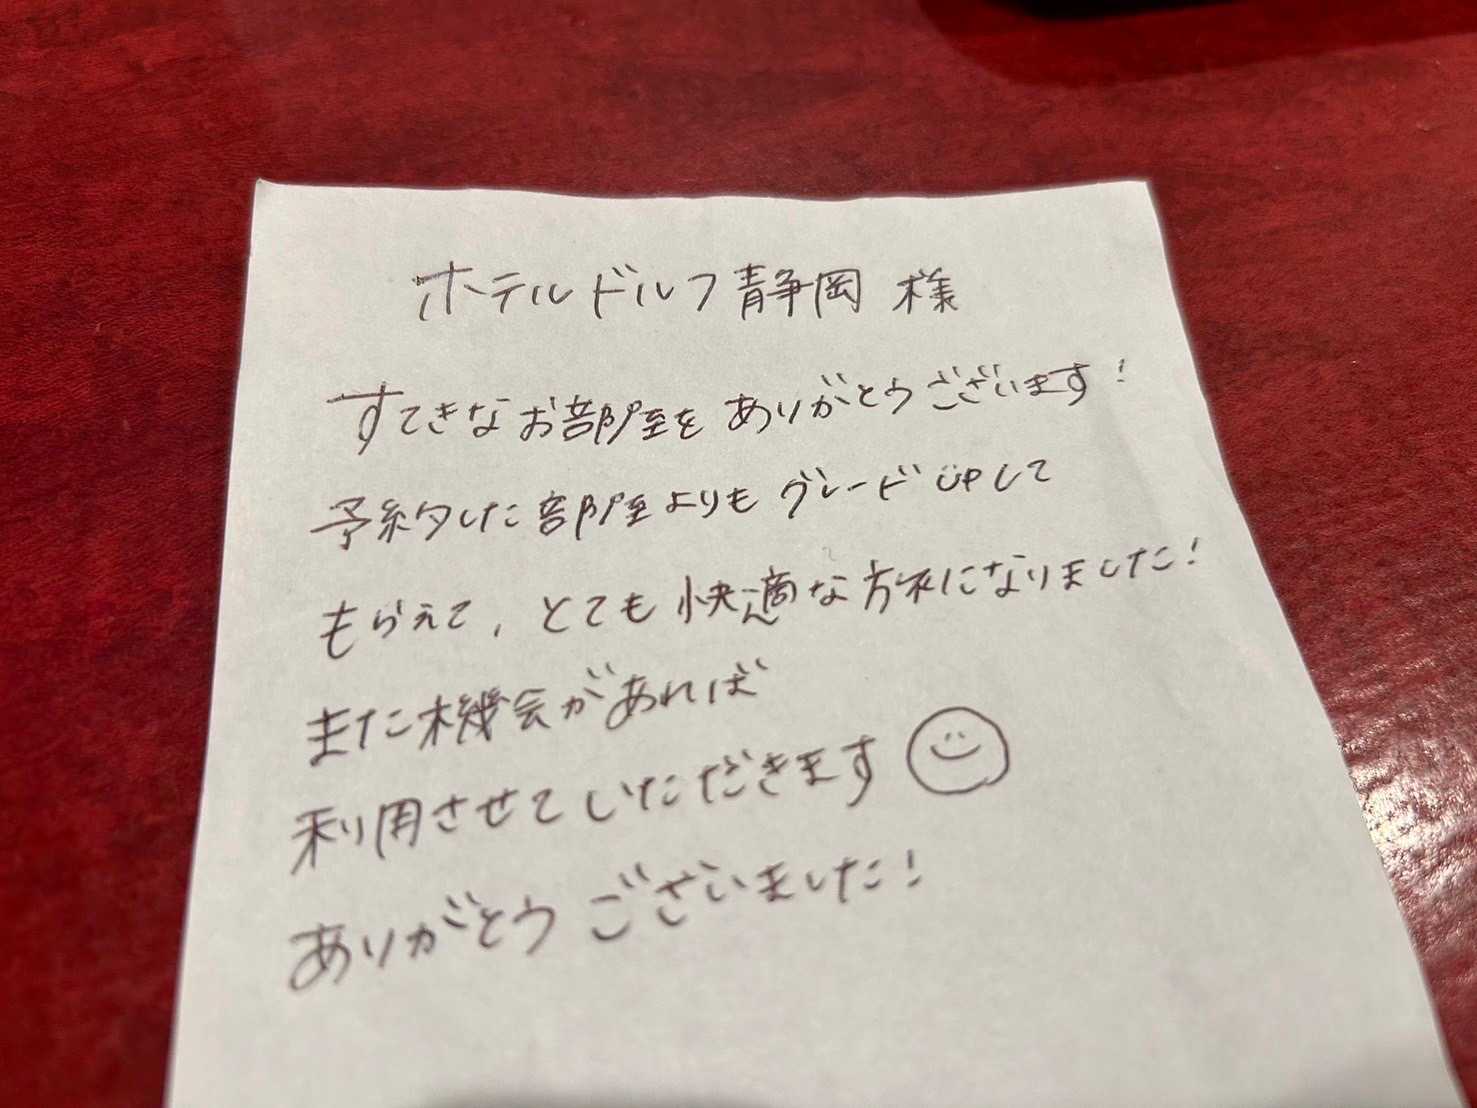 ホテルドルフ静岡 様
すてきなお部屋をありがとうございます!
予約した部屋よりもグレードUPして
もらえて、とても快適な方旅になりました!
また機会があれば
利用させていただきます
ありがとうございました!